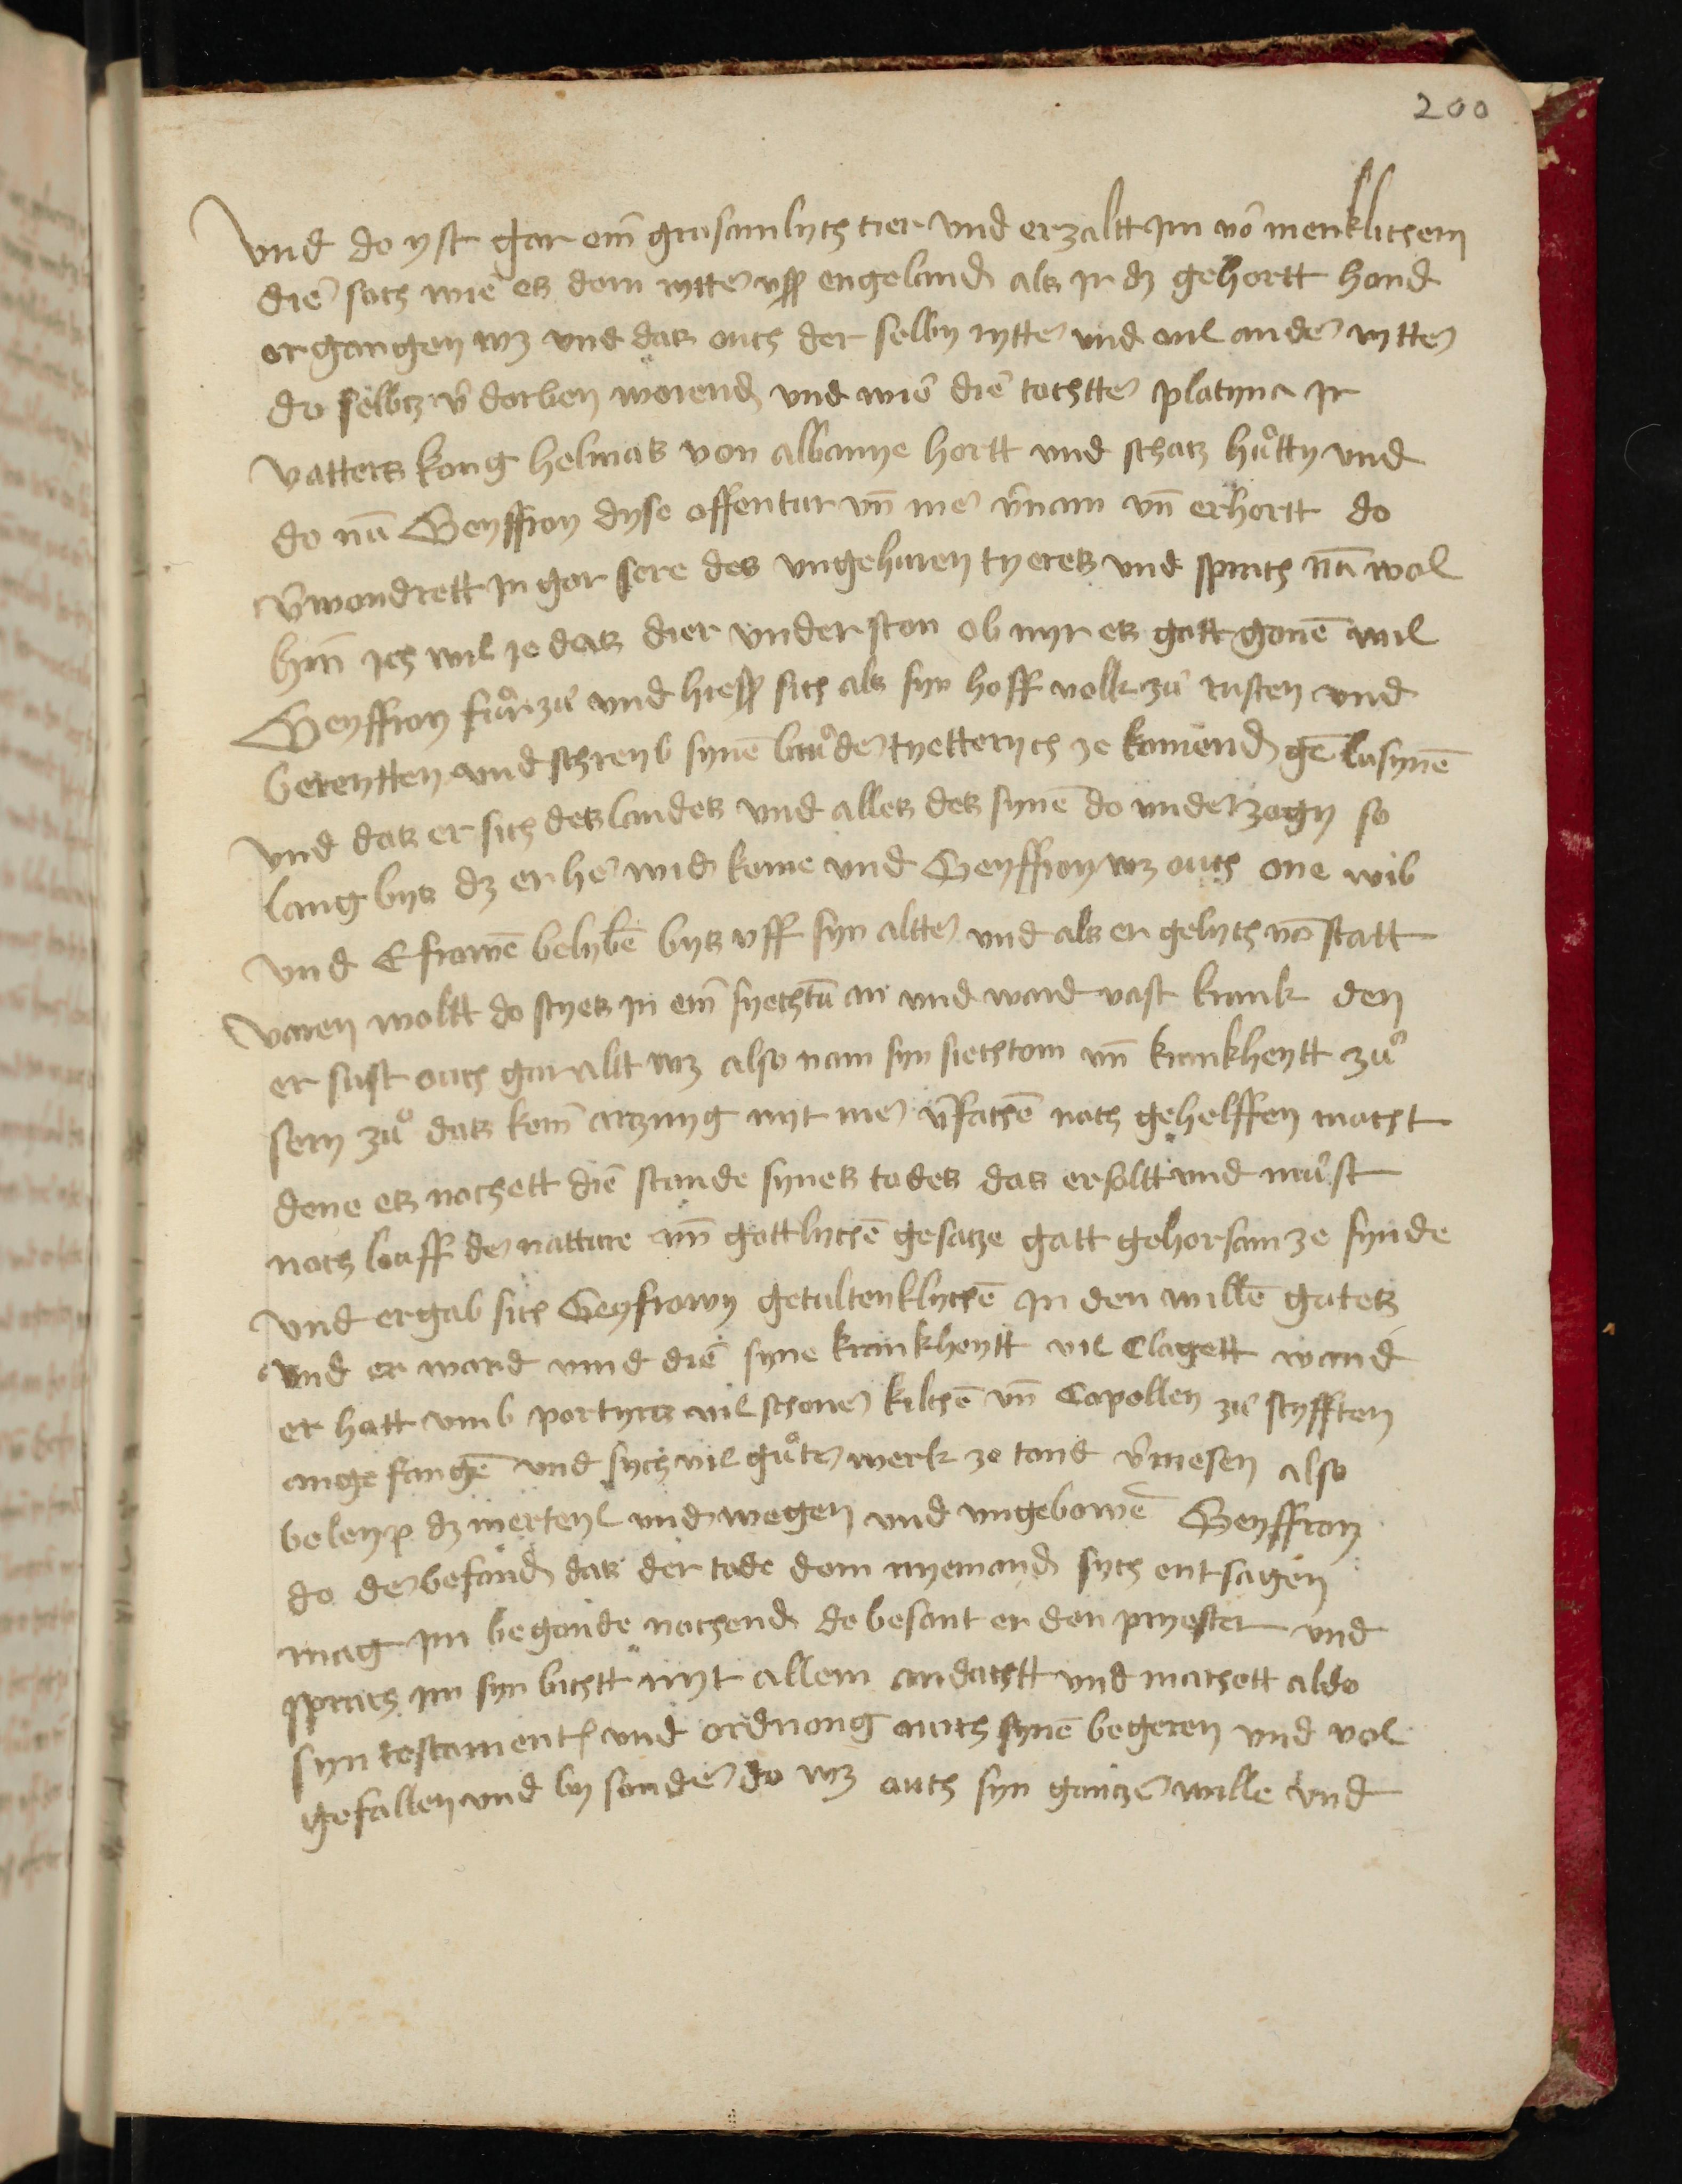 200
vnd do yst gar ein̄ grusamlych tier vnd erzaltt Im vō menklichem
die sach wie es dem rytter vsß engeland als Ir dz gehortt hand
ergangen wz vnd das ouch der selby rytter vnd vil ander rytter
do selbtz v̄dorben wörend vnd wie die tochtter platyna Ir
vatters kong helmas von albanye hortt vnd schatz hůtty vnd
do nū Geyffroy dyse offentur vn̄ mer v̄nam vn̄ erhortt do
v̄wondrett In gar sere des vngehuren tyeres vnd sprach nū wol
hin̄ Ich wil je das dier vnderston ob myr es gott gonē wil
Geyffroy fůr zů vnd hiesß sich als syn hoff volk zů rusten vnd
bereytten vnd schreyb synē bruͦder tyetterych ze komend gē lusynē
vnd das er sich des landes vnd alles des synē do vnderzogy so
lang bys dz er her wid kome vnd Geyffroy wz ouch one wib
vnd Efrowē belybē bys vff syn altter vnd als er gelych vō statt
varen woltt do styes In ein̄ syechtū an vnd ward vast krank den
er sust ouch gar allt wz also nam syn siechtom vn̄ krankheytt zů
sem zů das kein̄ artzny g nyt mer v̄fachē noch gehelffen mocht
dene es nochett die stunde synes todes das er soltt vnd můst
noch louff der natture vn̄ gottlychē gesatze gott gehorsam ze synde
vnd ergab sich Geyfroyy getultenklychē In den willē gotes
vnd er ward vmd die syne krankheytt vil Clagett wand
er hatt vmb portyras vil schoner kilchē vn̄ Capollen zů styfften
angefangē vnd sych vil gůter werk ze tond v̄mesen also
beleyp dz merteyl vnderwegen vnd vngebowē Geyffroy
do der befand das der tode dem nyemand sych entsagen
mag Im begonde nochend do besant er den pryester vnd
sprach Im syn bichtt myt allem andachtt vnd machett aldo
syn testament vnd ordnong noch synē begeren vnd vol
gefallen vnd by sonder do wz ouch syn gantzer wille vnd